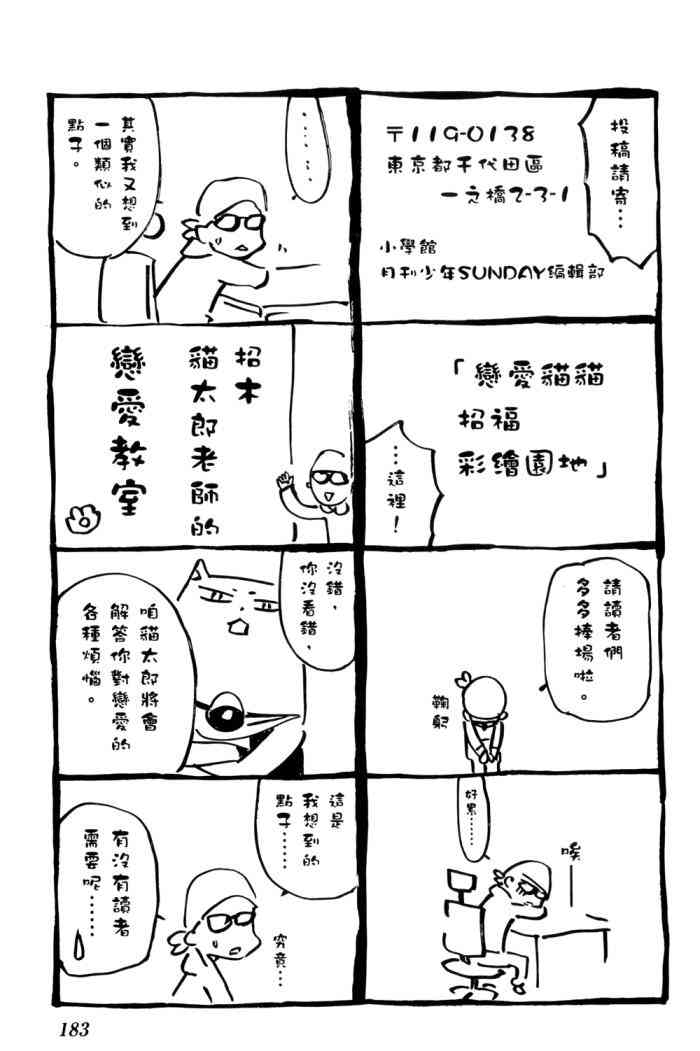 投稿請寄…
〒119-0138
東京都千代田區
一之橋2-3-1
小學館
月刊少年SUNDAY編輯部
「戀愛貓貓
招福
彩繪園地」
…這裡！
請讀者們
多多捧場啦。
鞠躬
好累……
唉
……
其實我又想到
一個類似的
點子。
招木
貓太郎老師的
戀愛教室
沒錯，
你沒看錯，
咱貓太郎將會
解答你對戀愛的
各種煩惱。
這是
我想到的
點子……
究竟…
有沒有讀者
需要呢……
183